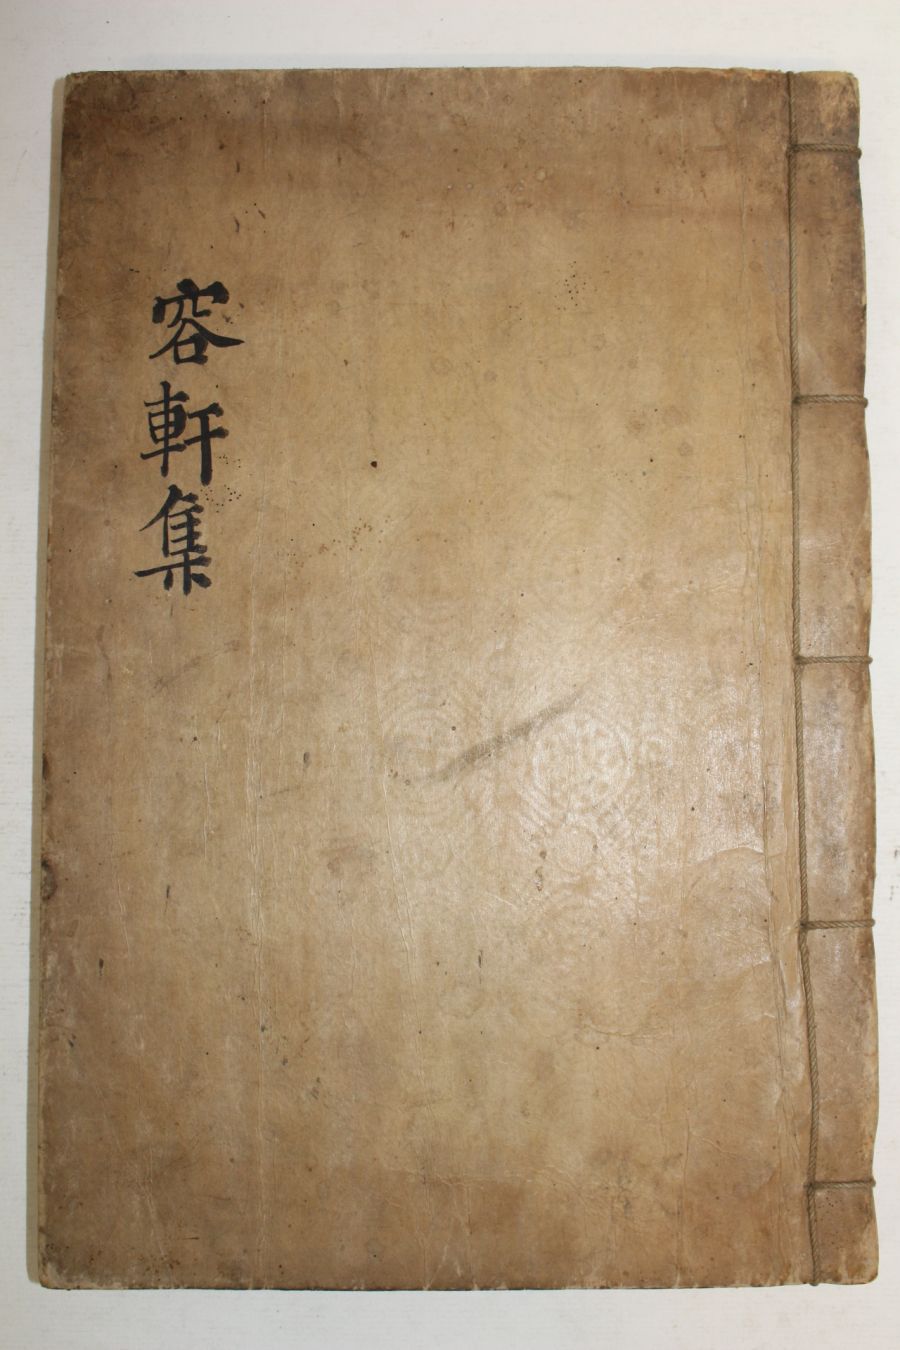 容軒集